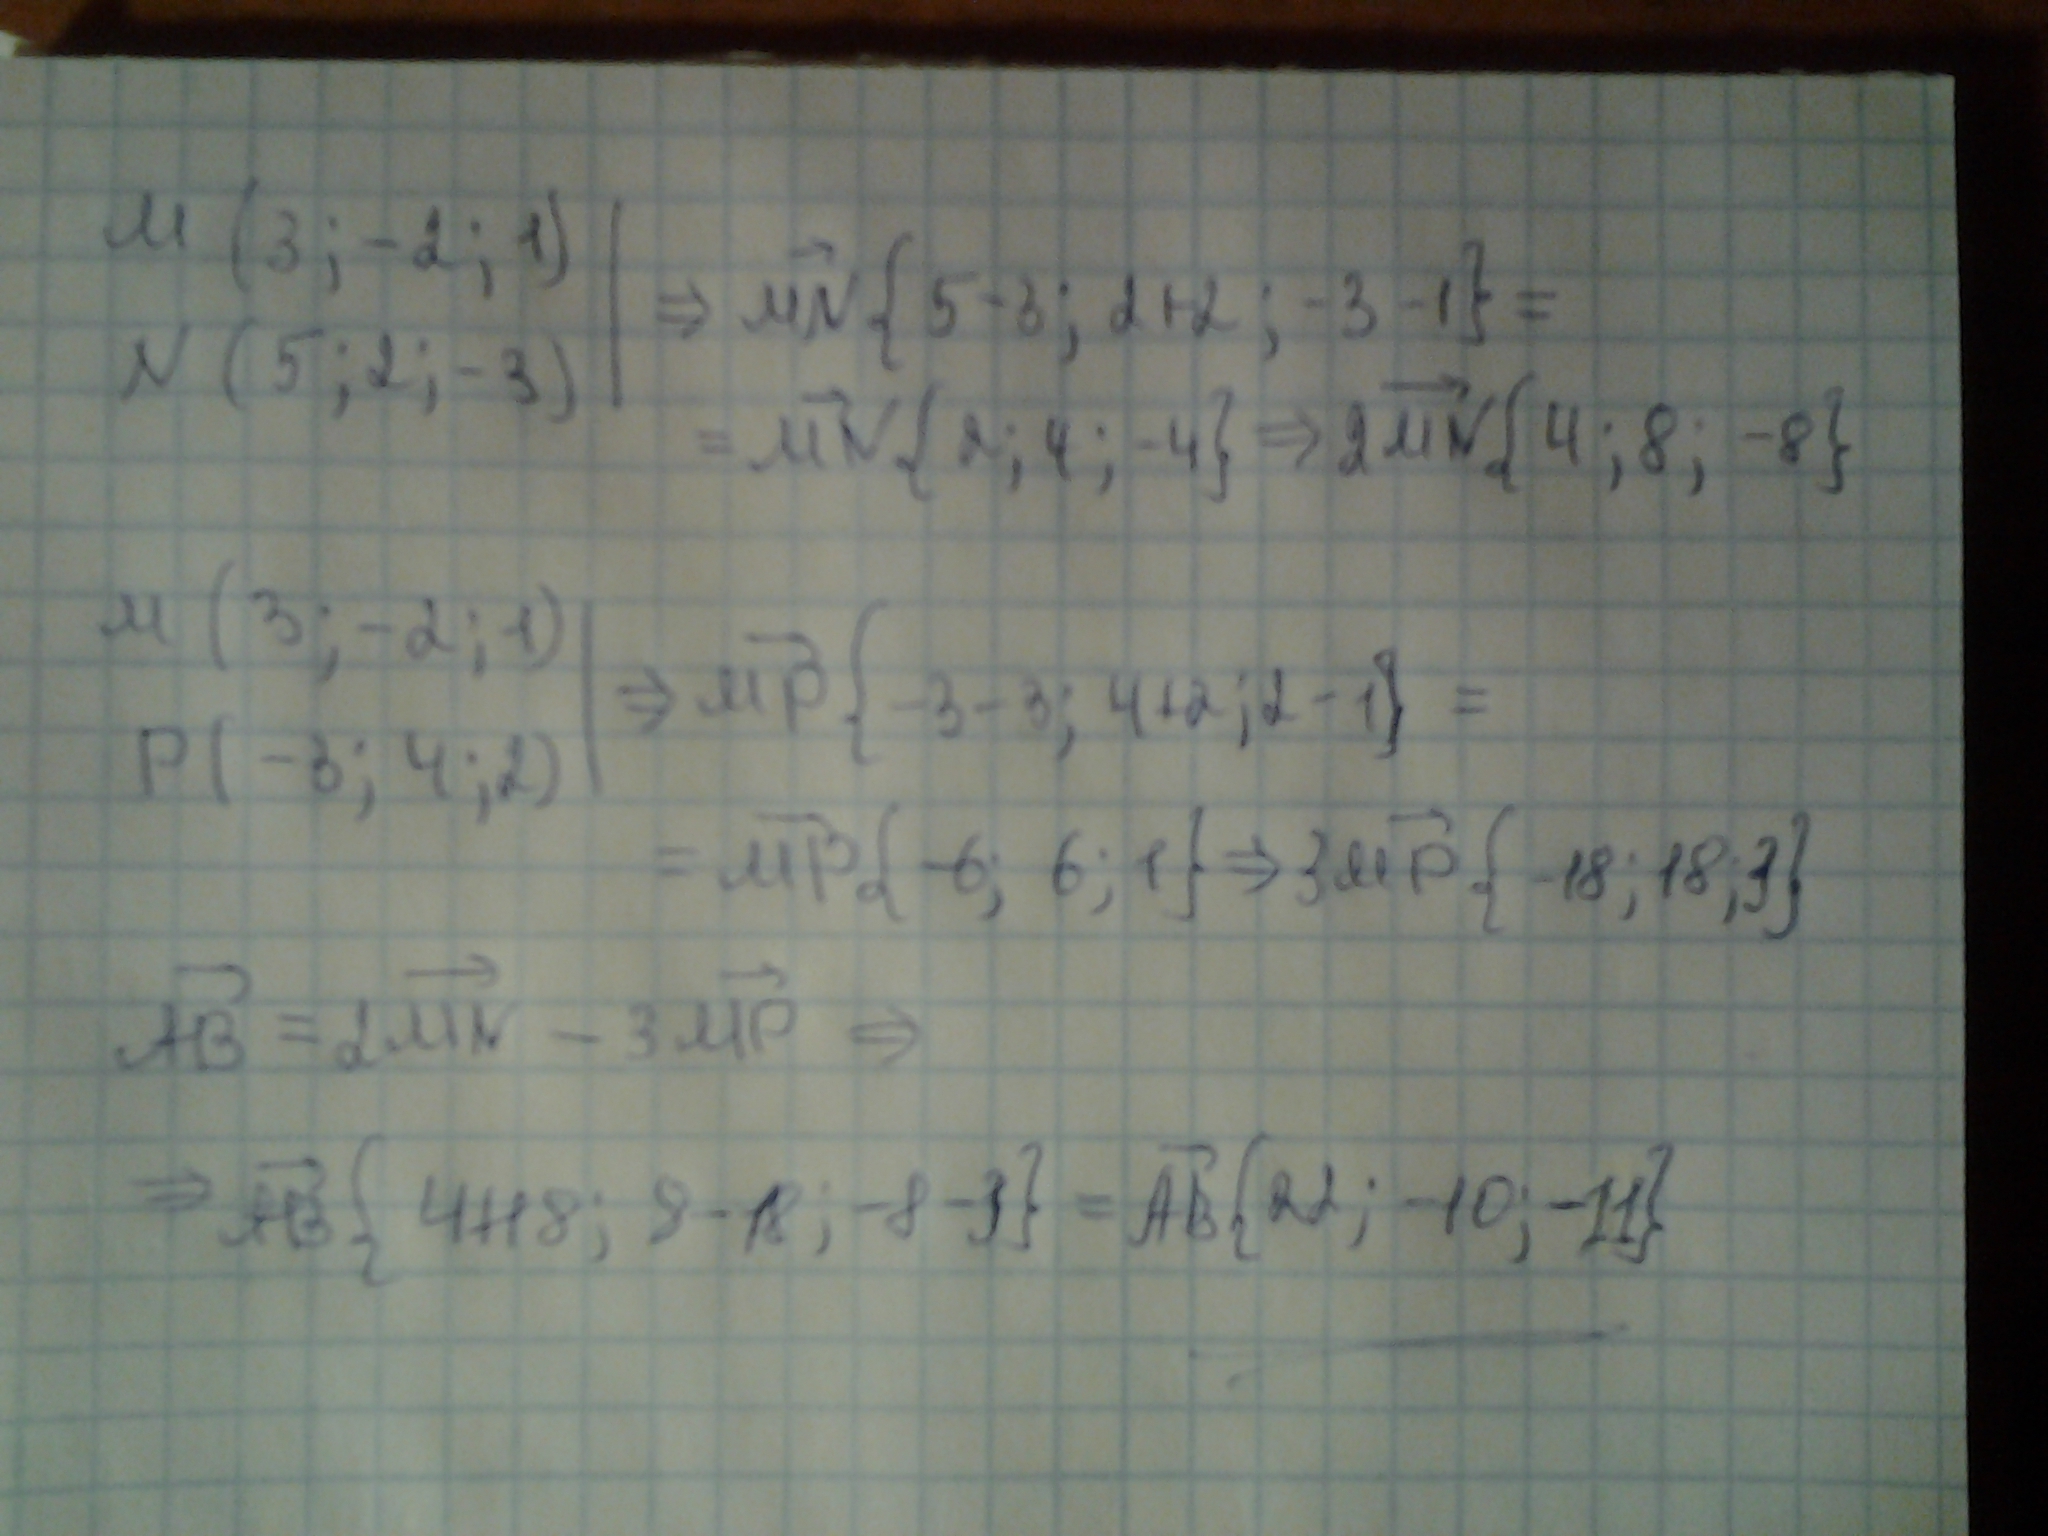 M (3; -2; 1) | ⇒ MN⃗{5-3; 2+2; -3-1} =
N (5; 2; -3) |
= MN⃗{2; 4; -4} ⇒ 2MN⃗{4; 8; -8}
M (3; -2; 1) | ⇒ MP⃗{-3-3; 4+2; 2-1} =
P (-3; 4; 2) |
= MP⃗{-6; 6; 1} ⇒ 3MP⃗{-18; 18; 3}
AB⃗ = 2MN⃗ - 3MP⃗ ⇒
⇒ AB⃗{4+18; 8-18; -8-3} = AB⃗{22; -10; -11}